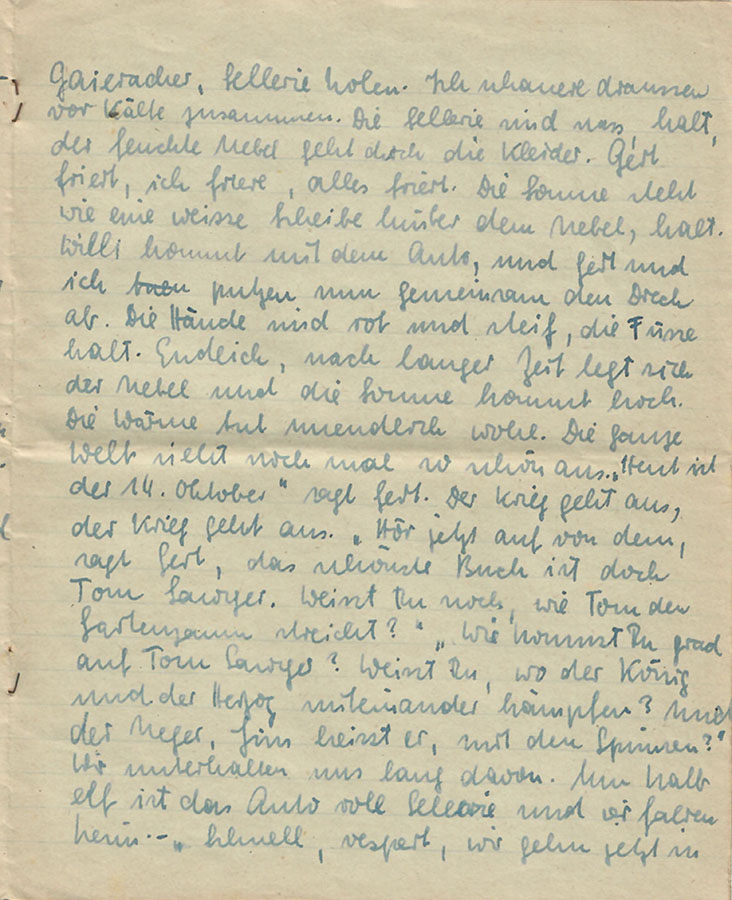 Gaieracher, Sellerie holen. Ich schauere draussen
vor Kälte zusammen. Die Sellerie sind nass, kalt,
der feuchte Nebel geht durch die Kleider. Gert
friert, ich friere, alles friert. Die Sonne steht
wie eine weisse Scheibe hinter dem Nebel, kalt.
Willi kommt mit dem Auto, und Gert und
ich putzen nun gemeinsam den Dreck
ab. Die Hände sind rot und steif, die Füsse
kalt. Endlich, nach langer Zeit legt sich
der Nebel und die Sonne kommt hoch.
Die Wärme tut unendlich wohl. Die ganze
Welt sieht noch mal so schön aus. „Heut ist
der 14. Oktober“ sagt Gert. Der Krieg geht aus,
der Krieg geht aus. „Hör jetzt auf von dem,
sagt Gert, das schönste Buch ist doch
Tom Sawyer. Weisst Du noch, wie Tom den
Gartenzaun streicht?“ „Wie kommst Du grad
auf Tom Sawyer? Weisst Du, wo der König
und der Herzog miteinander kämpfen? Und
der Neger, Jim heisst er, mit den Spinnen?“
Wir unterhalten uns lang davon. Um halb
elf ist das Auto voll Sellerie und wir fahren
heim. – „Schnell, vespert, wir gehn jetzt in